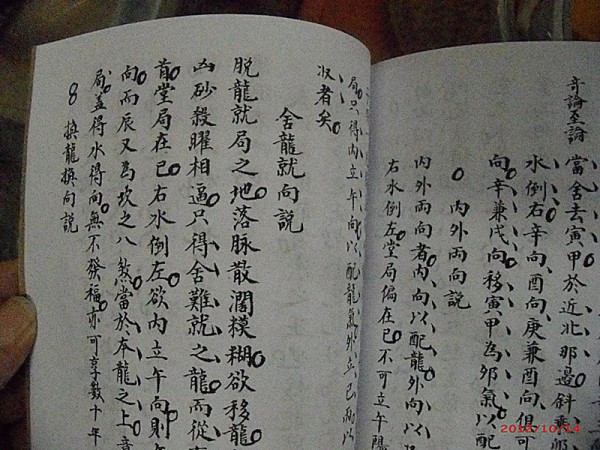 奇論至論
當舍去寅甲於近北那邊斜乘
水倒右辛向酉向庚兼酉向但可
向辛兼戌向移寅甲為卯氣以配
內外兩向說
內外兩向者內向以配龍外向以
右水倒左堂局偏在巳不可立午
局只得內立午向以配龍氣外立巳
収者矣
舍龍就向說
脫龍就局之地落脉散濶模糊欲移龍
凶砂殺曜相逼只得舍難就之龍而從
首堂局在巳右水倒左欲內立午向則
向而辰又為坎之八煞當於本龍之上
局盖得水得向無不發福亦可享数十年
8 撰龍撰向說
2013/10/14